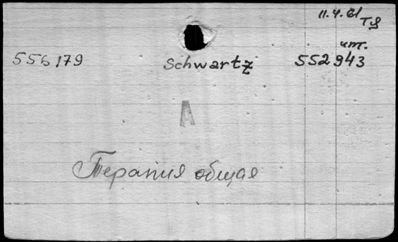 11.4.61
Тд
556179 Schwartz 552943
А
Терапия общая